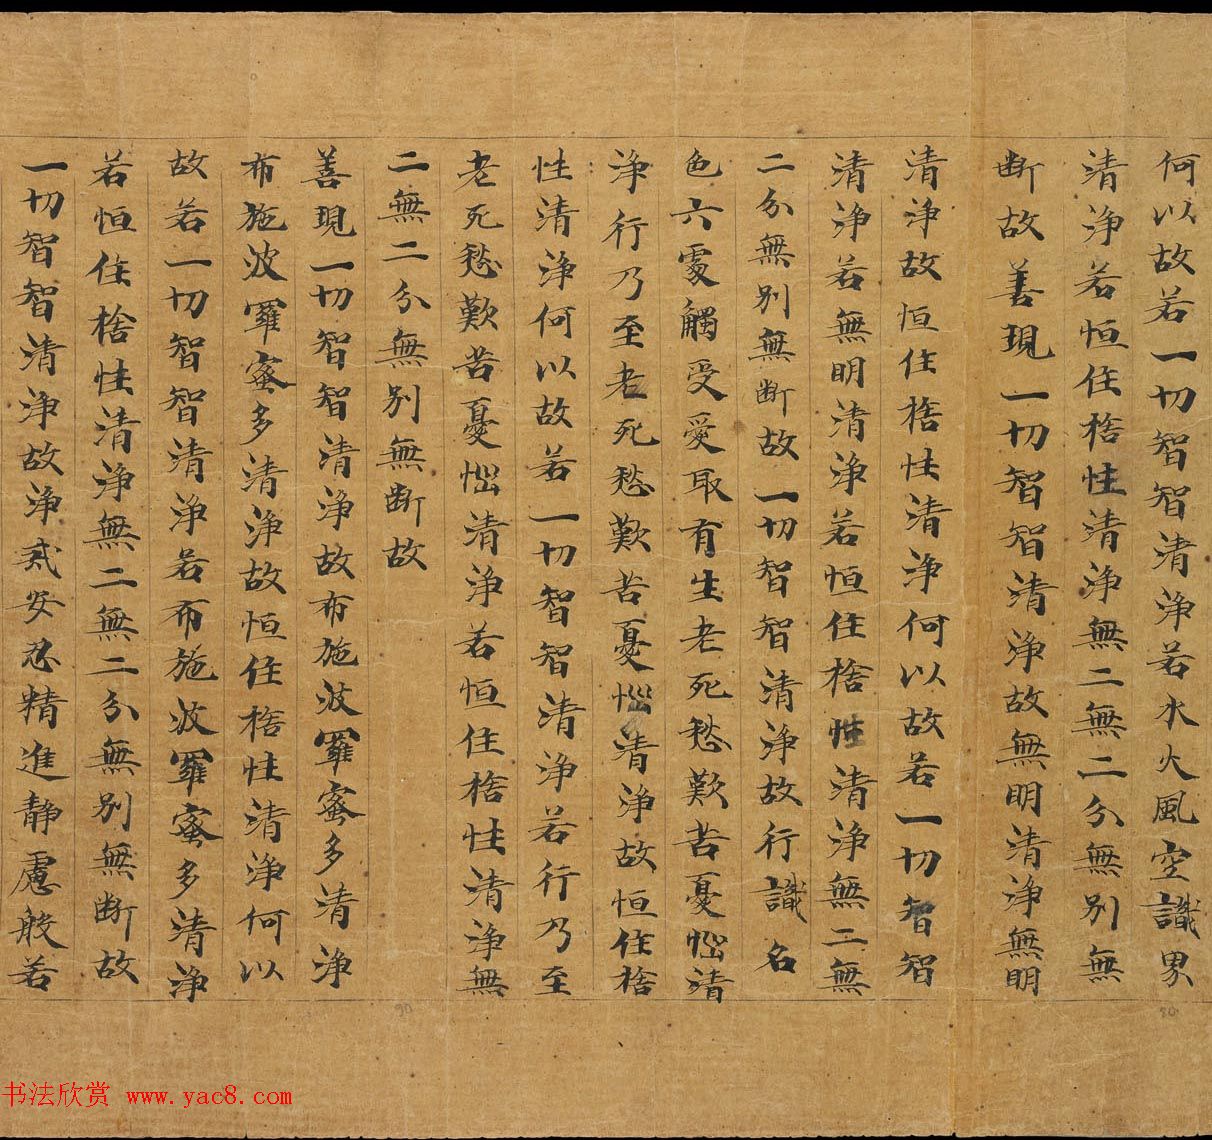 何以故若一切智智清淨若水火風空識界
清淨若恒住捨性清淨無二無二分無別無
断故善現一切智智清淨故無明清淨無明
清淨故恒住捨性清淨何以故若一切智智
清淨若無明清淨若恒住捨性清淨無二無
二分無別無断故一切智智清淨故行識名
色六處觸受愛取有生老死愁歎苦憂惱清
淨行乃至老死愁歎苦憂惱清淨故恒住捨
性清淨何以故若一切智智清淨若行乃至
老死愁歎苦憂惱清淨若恒住捨性清淨無
二無二分無別無断故
善現一切智智清淨故布施波羅蜜多清淨
布施波羅蜜多清淨故恒住捨性清淨何以
故若一切智智清淨若布施波羅蜜多清淨
若恒住捨性清淨無二無二分無別無断故
一切智智清淨故淨戒安忍精進静慮般若
书法欣赏 www.yac8.com